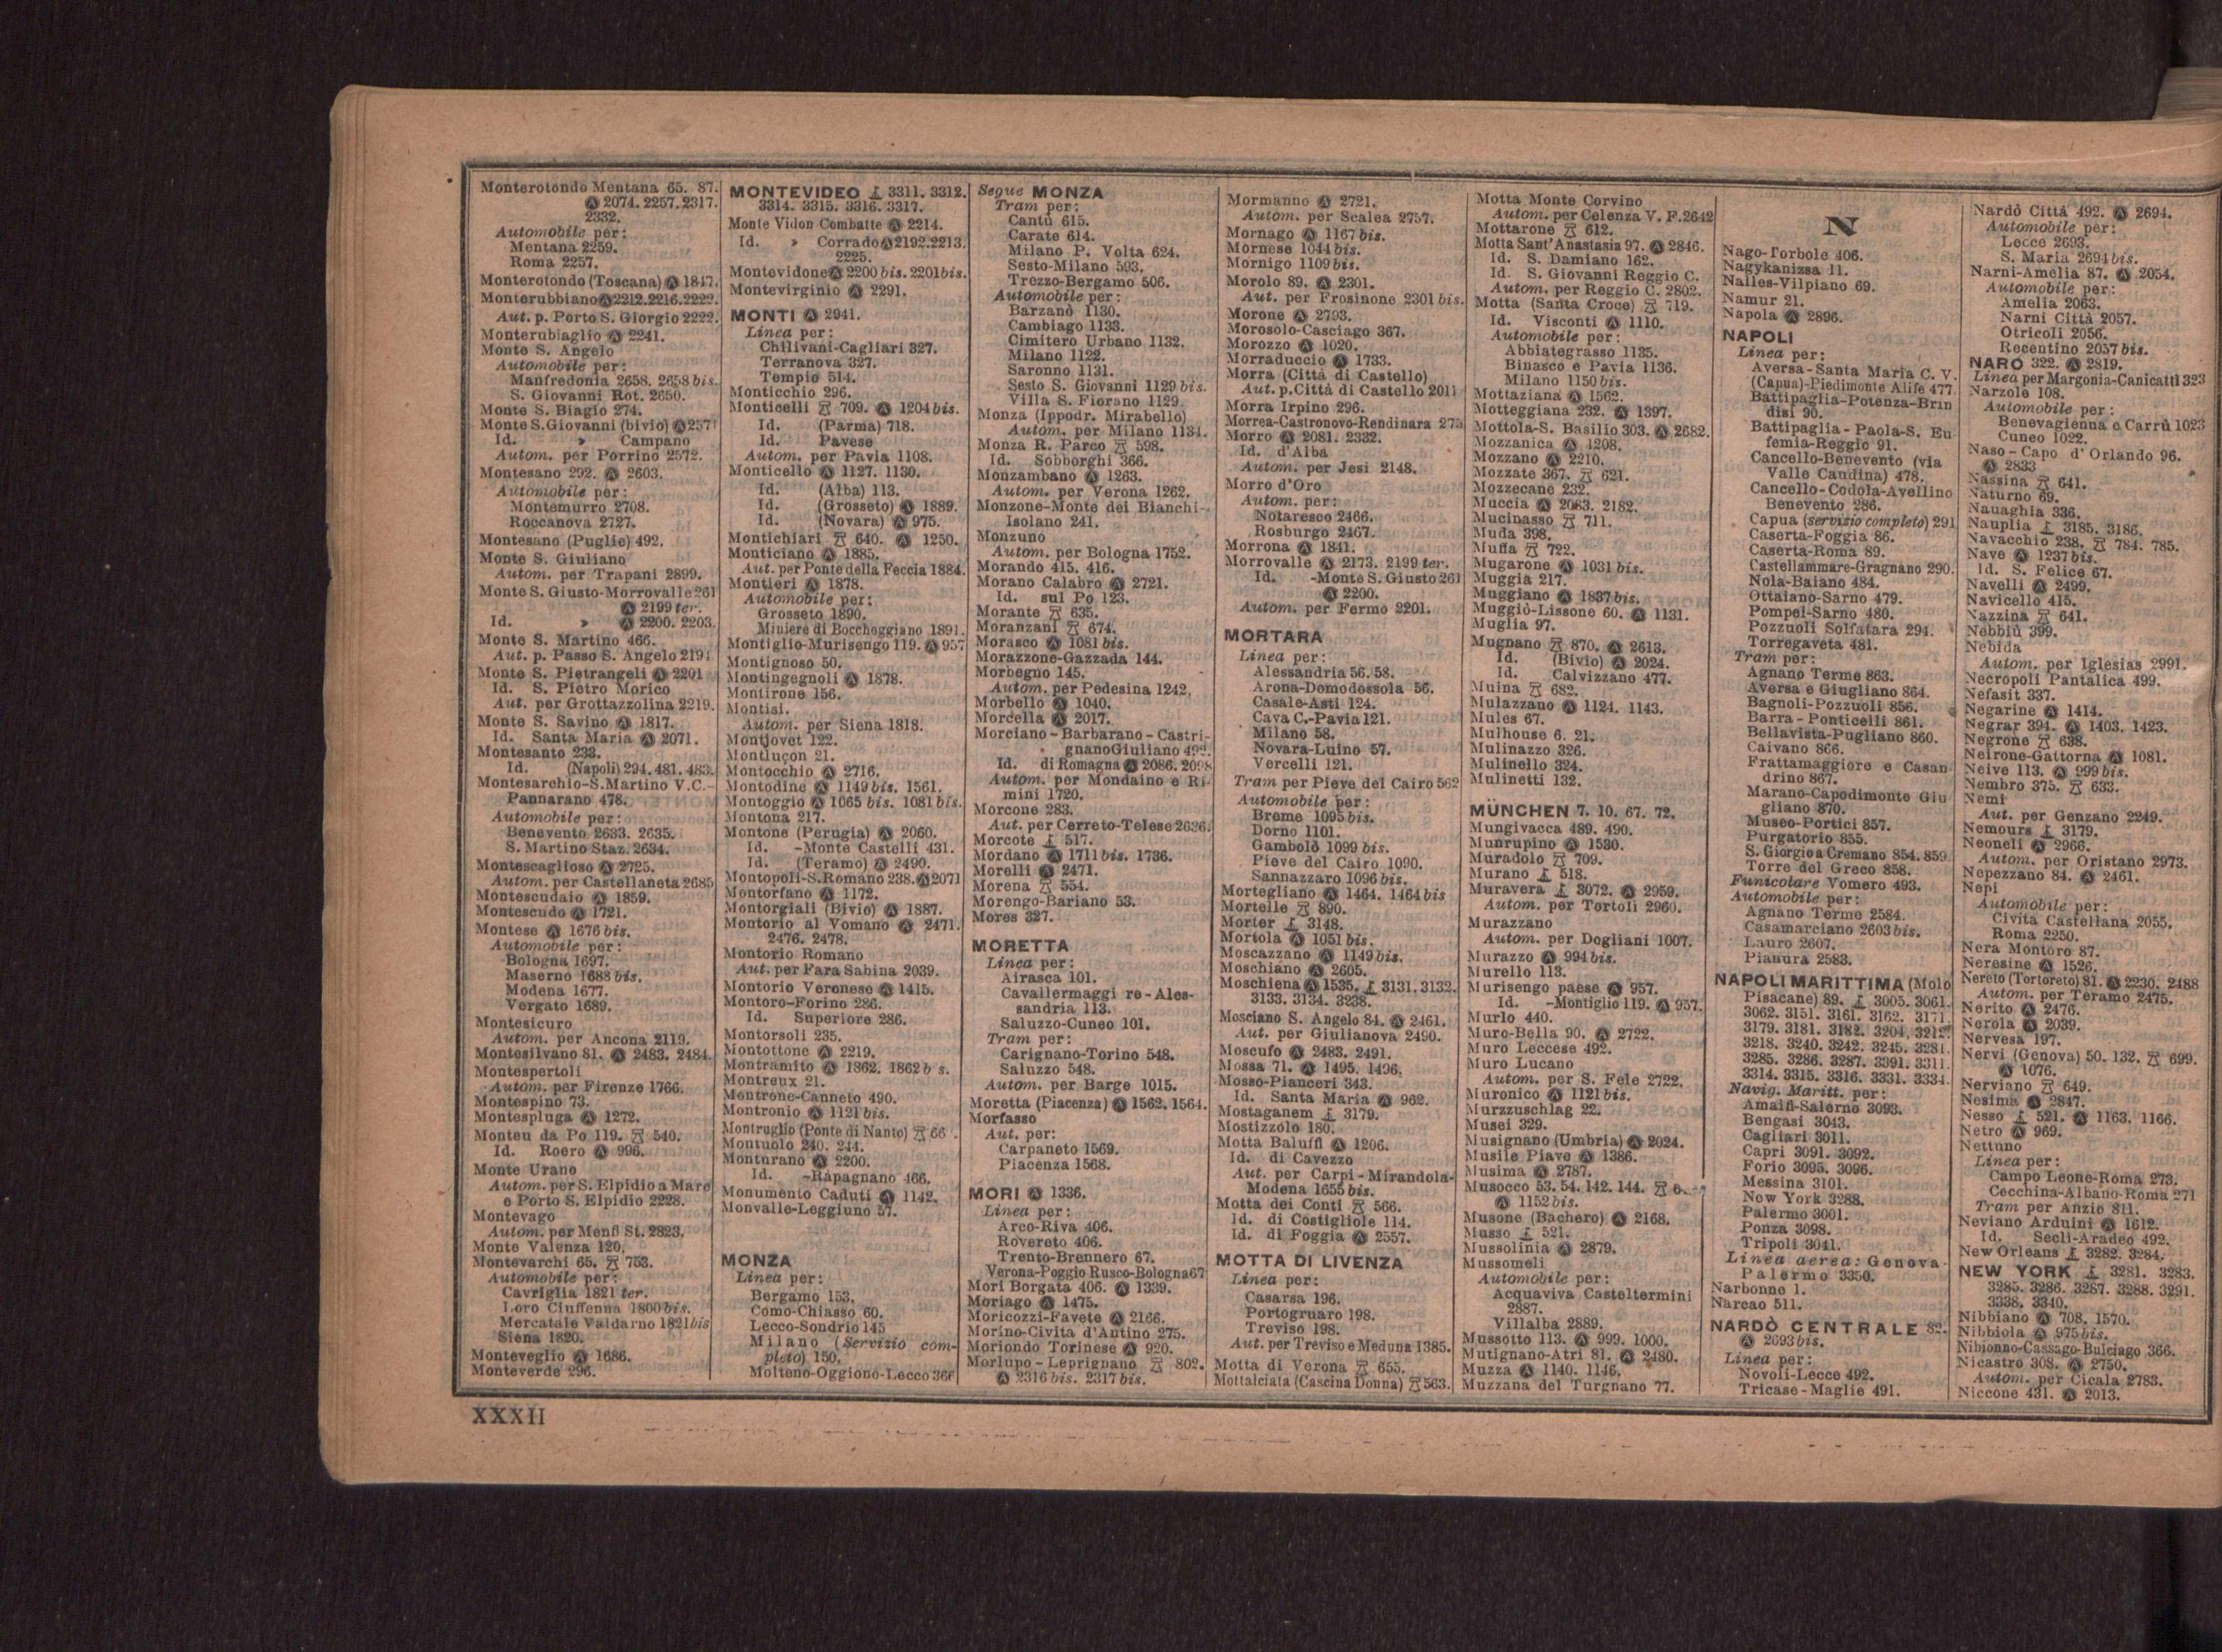 Monterotondo Mentana 65. 87.
Ⓐ 2074. 2257. 2317.
2332.
Automobile per:
Mentana 2259.
Roma 2257.
Monterotondo (Toscana) Ⓐ 1847.
Monterubbiano Ⓐ 2212. 2216. 2222.
Aut. p. Porto S. Giorgio 2222.
Monterubiaglio Ⓐ 2241.
Monte S. Angelo
Automobile per:
Manfredonia 2658. 2658 bis.
S. Giovanni Rot. 2650.
Monte S. Biagio 274.
Monte S. Giovanni (bivio) Ⓐ 257
Id. » Campano
Autom. per Porrino 2572.
Montesano 292. Ⓐ 2603.
Automobile per:
Montemurro 2708.
Roccanova 2727.
Montesano (Puglie) 492.
Monte S. Giuliano
Autom. per Trapani 2899.
Monte S. Giusto-Morrovalle 261
Ⓐ 2199 ter.
Id. » Ⓐ 2200. 2203.
Monte S. Martino 466.
Aut. p. Passo S. Angelo 219
Monte S. Pietrangeli Ⓐ 2201
Id. S. Pietro Morico
Aut. per Grottazzolina 2219.
Monte S. Savino Ⓐ 1817.
Id. Santa Maria Ⓐ 2071.
Montesanto 233.
Id. (Napoli) 294. 481. 483.
Montesarchio-S. Martino V. C.-
Pannarano 478.
Automobile per:
Benevento 2633. 2635.
S. Martino Staz. 2634.
Montescaglioso Ⓐ 2725.
Autom. per Castellaneta 2685
Montescudaio Ⓐ 1859.
Montescudo Ⓐ 1721.
Montese Ⓐ 1676 bis.
Automobile per:
Bologna 1697.
Maserno 1688 bis.
Modena 1677.
Vergato 1689.
Montesicuro
Autom. per Ancona 2119.
Montesilvano 81. Ⓐ 2483. 2484.
Montespertoli
Autom. per Firenze 1766.
Montespino 73.
Montespluga Ⓐ 1272.
Monteu da Po 119. 540.
Id. Roero Ⓐ 996.
Monte Urano
Autom. per S. Elpidio a Mare
e Porto S. Elpidio 2228.
Montevago
Autom. per Menfi St. 2823.
Monte Valenza 120.
Montevarchi 65. 753.
Automobile per:
Cavriglia 1821 ter.
Loro Ciuffenna 1800 bis.
Mercatale Valdarno 1821 bis
Siena 1820.
Monteveglio Ⓐ 1686.
Monteverde 296.
MONTEVIDEO 3311. 3312.
3314. 3315. 3316. 3317.
Monte Vidon Combatte Ⓐ 2214.
Id. » Corrado Ⓐ 2192. 2213.
2225.
Montevidone Ⓐ 2200 bis. 2201 bis.
Montevirginio Ⓐ 2291.
MONTI Ⓐ 2941.
Linea per:
Chilivani-Cagliari 327.
Terranova 327.
Tempio 514.
Monticchio 296.
Monticelli 709. Ⓐ 1204 bis.
Id. (Parma) 718.
Id. Pavese
Autom. per Pavia 1108.
Monticello Ⓐ 1127. 1130.
Id. (Alba) 113.
Id. (Grosseto) Ⓐ 1889.
Id. (Novara) Ⓐ 975.
Montichiari 640. Ⓐ 1250.
Monticiano Ⓐ 1885.
Aut. per Ponte della Feccia 1884.
Montieri Ⓐ 1878.
Automobile per:
Grosseto 1890.
Miniere di Boccheggiano 1891.
Montiglio-Murisengo 119. Ⓐ 957
Montignoso 50.
Montingegnoli Ⓐ 1878.
Montirone 156.
Montisi.
Autom. per Siena 1818.
Montjovet 122.
Montluçon 21.
Montocchio Ⓐ 2716.
Montodine Ⓐ 1149 bis. 1561.
Montoggio Ⓐ 1065 bis. 1081 bis.
Montona 217.
Montone (Perugia) Ⓐ 2060.
Id. -Monte Castelli 431.
Id. (Teramo) Ⓐ 2490.
Montopoli-S. Romano 238. Ⓐ 2071
Montorfano Ⓐ 1172.
Montorgiali (Bivio) Ⓐ 1887.
Montorio al Vomano Ⓐ 2471.
2476. 2478.
Montorio Romano
Aut. per Fara Sabina 2039.
Montorio Veronese Ⓐ 1415.
Montoro-Forino 286.
Id. Superiore 286.
Montorsoli 235.
Montottone Ⓐ 2219.
Montramito Ⓐ 1862. 1862 b s.
Montreux 21.
Montrone-Canneto 490.
Montronio Ⓐ 1121 bis.
Montruglio (Ponte di Nanto) 66 .
Montuolo 240. 244.
Monturano Ⓐ 2200.
Id. -Rapagnano 466.
Monumento Caduti Ⓐ 1142.
Monvalle-Leggiuno 57.
MONZA
Linea per:
Bergamo 153.
Como-Chiasso 60.
Lecco-Sondrio 145
Milano (Servizio com-
pleto) 150.
Molteno-Oggiono-Lecco 366
Segue MONZA
Tram per:
Cantù 615.
Carate 614.
Milano P. Volta 624.
Sesto-Milano 593.
Trezzo-Bergamo 506.
Automobile per:
Barzanò 1130.
Cambiago 1133.
Cimitero Urbano 1132.
Milano 1122.
Saronno 1131.
Sesto S. Giovanni 1129 bis.
Villa S. Fiorano 1129.
Monza (Ippodr. Mirabello)
Autom. per Milano 1134.
Monza R. Parco 598.
Id. Sobborghi 366.
Monzambano Ⓐ 1263.
Autom. per Verona 1262.
Monzone-Monte dei Bianchi-
Isolano 241.
Monzuno
Autom. per Bologna 1752.
Morando 415. 416.
Morano Calabro Ⓐ 2721.
Id. sul Po 123.
Morante 635.
Moranzani 674.
Morasco Ⓐ 1081 bis.
Morazzone-Gazzada 144.
Morbegno 145.
Autom. per Pedesina 1242.
Morbello Ⓐ 1040.
Morcella Ⓐ 2017.
Morciano-Barbarano-Castri-
gnano Giuliano 492.
Id. di Romagna Ⓐ 2086. 2098
Autom. per Mondaino e Ri-
mini 1720.
Morcone 283.
Aut. per Cerreto-Telese 2636.
Morcote 517.
Mordano Ⓐ 1711 bis. 1736.
Morelli Ⓐ 2471.
Morena 554.
Morengo-Bariano 53.
Mores 327.
MORETTA
Linea per:
Airasca 101.
Cavallermaggi re-Ales-
sandria 113.
Saluzzo-Cuneo 101.
Tram per:
Carignano-Torino 548.
Saluzzo 548.
Autom. per Barge 1015.
Moretta (Piacenza) Ⓐ 1562. 1564.
Morfasso
Aut. per:
Carpaneto 1569.
Piacenza 1568.
MORI Ⓐ 1336.
Linea per:
Arco-Riva 406.
Rovereto 406.
Trento-Brennero 67.
Verona-Poggio Rusco-Bologna 67
Mori Borgata 406. Ⓐ 1339.
Moriago Ⓐ 1475.
Moricozzi-Favete Ⓐ 2166.
Morino-Civita d'Antino 275.
Moriondo Torinese Ⓐ 920.
Morlupo-Leprignano 802.
Ⓐ 2316 bis. 2317 bis.
Mormanno Ⓐ 2721.
Autom. per Scalea 2757.
Mornago Ⓐ 1167 bis.
Mornese 1044 bis.
Mornigo 1109 bis.
Morolo 89. Ⓐ 2301.
Aut. per Frosinone 2301 bis.
Morone Ⓐ 2793.
Morosolo-Casciago 367.
Morozzo Ⓐ 1020.
Morraduccio Ⓐ 1733.
Morra (Città di Castello)
Aut. p. Città di Castello 2011
Morra Irpino 296.
Morrea-Castronovo-Rendinara 275
Morro Ⓐ 2081. 2332.
Id. d'Alba
Autom. per Jesi 2148.
Morro d'Oro
Autom. per:
Notaresco 2466.
Rosburgo 2467.
Morrona Ⓐ 1841.
Morrovalle Ⓐ 2173. 2199 ter.
Id. -Monte S. Giusto 261
Ⓐ 2200.
Autom. per Fermo 2201.
MORTARA
Linea per:
Alessandria 56. 58.
Arona-Domodossola 56.
Casale-Asti 124.
Cava C.-Pavia 121.
Milano 58.
Novara-Luino 57.
Vercelli 121.
Tram per Pieve del Cairo 562
Automobile per:
Breme 1095 bis.
Dorno 1101.
Gambolò 1099 bis.
Pieve del Cairo 1090.
Sannazzaro 1096 bis.
Mortegliano Ⓐ 1464. 1464 bis
Mortelle 890.
Morter 3148.
Mortola Ⓐ 1051 bis.
Moscazzano Ⓐ 1149 bis.
Moschiano Ⓐ 2605.
Moschiena Ⓐ 1535. 3131. 3132.
3133. 3134. 3238.
Mosciano S. Angelo 84. Ⓐ 2461.
Aut. per Giulianova 2490.
Moscufo Ⓐ 2483. 2491.
Mossa 71. Ⓐ 1495. 1496.
Mosso-Pianceri 343.
Id. Santa Maria Ⓐ 962.
Mostaganem 3179.
Mostizzolo 180.
Motta Baluffi Ⓐ 1206.
Id. di Cavezzo
Aut. per Carpi-Mirandola-
Modena 1655 bis.
Motta dei Conti 566.
Id. di Costigliole 114.
Id. di Foggia Ⓐ 2557.
MOTTA DI LIVENZA
Linea per:
Casarsa 196.
Portogruaro 198.
Treviso 198.
Aut. per Treviso e Meduna 1385.
Motta di Verona 655.
Mottalciata (Cascina Donna) 563.
Motta Monte Corvino
Autom. per Celenza V. F. 2642
Mottarone 612.
Motta Sant'Anastasia 97. Ⓐ 2846.
Id. S. Damiano 162.
Id. S. Giovanni Reggio C.
Autom. per Reggio C. 2802.
Motta (Santa Croce) 719.
Id. Visconti Ⓐ 1110.
Automobile per:
Abbiategrasso 1135.
Binasco e Pavia 1136.
Milano 1150 bis.
Mottaziana Ⓐ 1562.
Motteggiana 232. Ⓐ 1397.
Mottola-S. Basilio 303. Ⓐ 2682.
Mozzanica Ⓐ 1208.
Mozzano Ⓐ 2210.
Mozzate 367. 621.
Mozzecane 232.
Muccia Ⓐ 2083. 2182.
Mucinasso 711.
Muda 398.
Muffa 722.
Mugarone Ⓐ 1031 bis.
Muggia 217.
Muggiano Ⓐ 1837 bis.
Muggiò-Lissone 60. Ⓐ 1131.
Muglia 97.
Mugnano 870. Ⓐ 2613.
Id. (Bivio) Ⓐ 2024.
Id. Calvizzano 477.
Muina 682.
Mulazzano Ⓐ 1124. 1143.
Mules 67.
Mulhouse 6. 21.
Mulinazzo 326.
Mulinello 324.
Mulinetti 132.
MÜNCHEN 7. 10. 67. 72.
Mungivacca 489. 490.
Munrupino Ⓐ 1530.
Muradolo 709.
Murano 518.
Muravera 3072. Ⓐ 2959.
Autom. per Tortoli 2960.
Murazzano
Autom. per Dogliani 1007.
Murazzo Ⓐ 994 bis.
Murello 113.
Murisengo paese Ⓐ 957.
Id. -Montiglio 119. Ⓐ 957.
Murlo 440.
Muro-Bella 90. Ⓐ 2722.
Muro Leccese 492.
Muro Lucano
Autom. per S. Fele 2722.
Muronico Ⓐ 1121 bis.
Murzzuschlag 22.
Musei 329.
Musignano (Umbria) Ⓐ 2024.
Musile Piave Ⓐ 1386.
Musima Ⓐ 2787.
Musocco 53. 54. 142. 144.
Ⓐ 1152 bis.
Musone (Bachero) Ⓐ 2168.
Musso 521.
Mussolinia Ⓐ 2879.
Mussomeli
Automobile per:
Acquaviva Casteltermini
2887.
Villalba 2889.
Mussotto 113. Ⓐ 999. 1000.
Mutignano-Atri 81. Ⓐ 2480.
Muzza Ⓐ 1140. 1146.
Muzzana del Turgnano 77.
N
Nago-Torbole 406.
Nagykanizsa 11.
Nalles-Vilpiano 69.
Namur 21.
Napola Ⓐ 2896.
NAPOLI
Linea per:
Aversa-Santa Maria C. V.
(Capua)-Piedimonte Alife 477
Battipaglia-Potenza-Brin
disi 90.
Battipaglia-Paola-S. Eu
femia-Reggio 91.
Cancello-Benevento (via
Valle Caudina) 478.
Cancello-Codola-Avellino
Benevento 286.
Capua (servizio completo) 291
Caserta-Foggia 86.
Caserta-Roma 89.
Castellammare-Gragnano 290.
Nola-Baiano 484.
Ottaiano-Sarno 479.
Pompei-Sarno 480.
Pozzuoli Solfatara 294.
Torregaveta 481.
Tram per:
Agnano Terme 863.
Aversa e Giugliano 864.
Bagnoli-Pozzuoli 856.
Barra-Ponticelli 861.
Bellavista-Pugliano 860.
Caivano 866.
Frattamaggiore e Casan
drino 867.
Marano-Capodimonte Giu
gliano 870.
Museo-Portici 857.
Purgatorio 855.
S. Giorgio a Cremano 854. 859
Torre del Greco 858.
Funicolare Vomero 493.
Automobile per:
Agnano Terme 2584.
Casamarciano 2603 bis.
Lauro 2607.
Pianura 2583.
NAPOLI MARITTIMA (Molo
Pisacane) 89. 3005. 3061.
3062. 3151. 3161. 3162. 3171.
3179. 3181. 3182. 3204. 3212.
3218. 3240. 3242. 3245. 3281.
3285. 3286. 3287. 3391. 3311.
3314. 3315. 3316. 3331. 3334.
Navig. Maritt. per:
Amalfi-Salerno 3093.
Bengasi 3043.
Cagliari 3011.
Capri 3091. 3092.
Forio 3095. 3096.
Messina 3101.
New York 3288.
Palermo 3001.
Ponza 3098.
Tripoli 3041.
Linea aerea: Genova-
Palermo 3350.
Narbonne 1.
Narcao 511.
NARDÒ CENTRALE 82.
Ⓐ 2693 bis.
Linea per:
Novoli-Lecce 492.
Tricase-Maglie 491.
Nardò Città 492. Ⓐ 2694.
Automobile per:
Lecce 2693.
S. Maria 2694 bis.
Narni-Amelia 87. Ⓐ 2054.
Automobile per:
Amelia 2063.
Narni Città 2057.
Otricoli 2056.
Recentino 2057 bis.
NARO 322. Ⓐ 2819.
Linea per Margonia-Canicatti 323
Narzole 108.
Automobile per:
Benevagienna e Carrù 1023
Cuneo 1022.
Naso-Capo d'Orlando 96.
Ⓐ 2833
Nassina 641.
Naturno 69.
Nauaghia 336.
Nauplia 3185. 3186.
Navacchio 238. 784. 785.
Nave Ⓐ 1237 bis.
Id. S. Felice 67.
Navelli Ⓐ 2499.
Navicello 415.
Nazzina 641.
Nebbiù 399.
Nebida
Autom. per Iglesias 2991.
Necropoli Pantalica 499.
Nefasit 337.
Negarine Ⓐ 1414.
Negrar 394. Ⓐ 1403. 1423.
Negrone 638.
Neirone-Gattorna Ⓐ 1081.
Neive 113. Ⓐ 999 bis.
Nembro 375. 633.
Nemi
Aut. per Genzano 2249.
Nemours 3179.
Neoneli Ⓐ 2966.
Autom. per Oristano 2973.
Nepezzano 84. Ⓐ 2461.
Nepi
Automobile per:
Civita Castellana 2055.
Roma 2250.
Nera Montoro 87.
Neresine Ⓐ 1526.
Nereto (Tortoreto) 81. Ⓐ 2230. 2488
Autom. per Teramo 2475.
Nerito Ⓐ 2476.
Nerola Ⓐ 2039.
Nervesa 197.
Nervi (Genova) 50. 132. 699.
Ⓐ 1076.
Nerviano 649.
Nesima Ⓐ 2847.
Nesso 521. Ⓐ 1163. 1166.
Netro Ⓐ 969.
Nettuno
Linea per:
Campo Leone-Roma 273.
Cecchina-Albano-Roma 271
Tram per Anzio 811.
Neviano Arduini Ⓐ 1612.
Id. Secli-Aradeo 492.
New Orleans 3282. 3284.
NEW YORK 3281. 3283.
3285. 3286. 3287. 3288. 3291.
3338. 3340.
Nibbiano Ⓐ 708. 1570.
Nibbiola Ⓐ 975 bis.
Nibionno-Cassago-Bulciago 366.
Nicastro 308. Ⓐ 2750.
Autom. per Cicala 2783.
Niccone 431. Ⓐ 2013.
XXXII